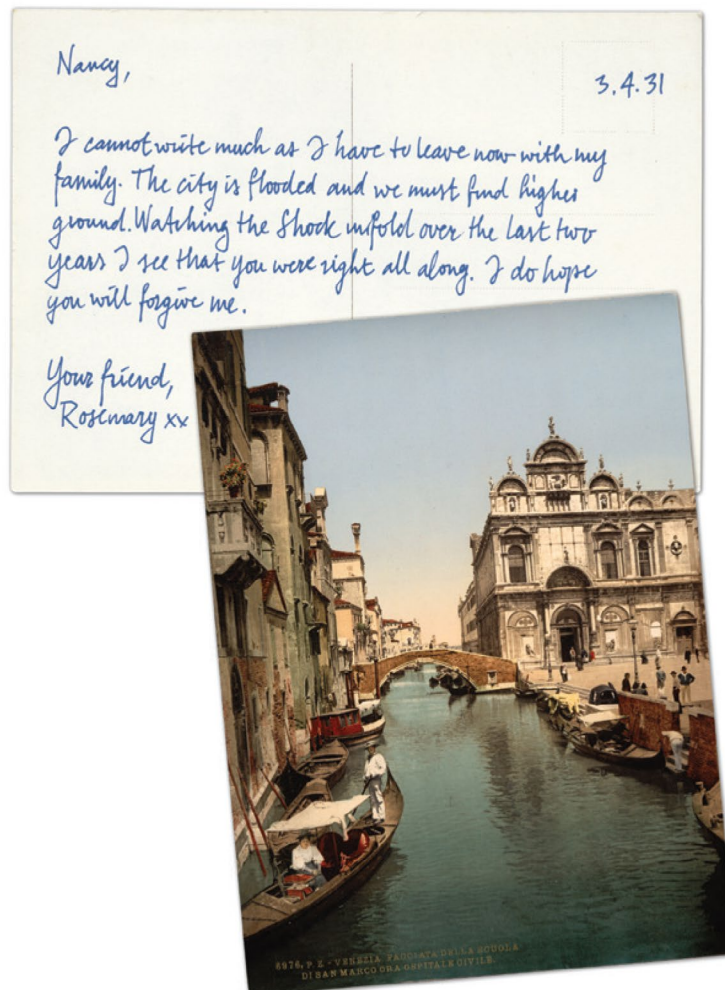 Nancy,
3.4.31
I cannot write much as I have to leave now with my
family. The city is flooded and we must find higher
ground. Watching the Shock unfold over the last two
years I see that you were right all along. I do hope
you will forgive me.
Your friend,
Rosemary xx
8976, P. Z - VENEZIA FACCIATA DELLA SCUOLA
DI SAN MARCO ORA OSPITALE CIVILE.